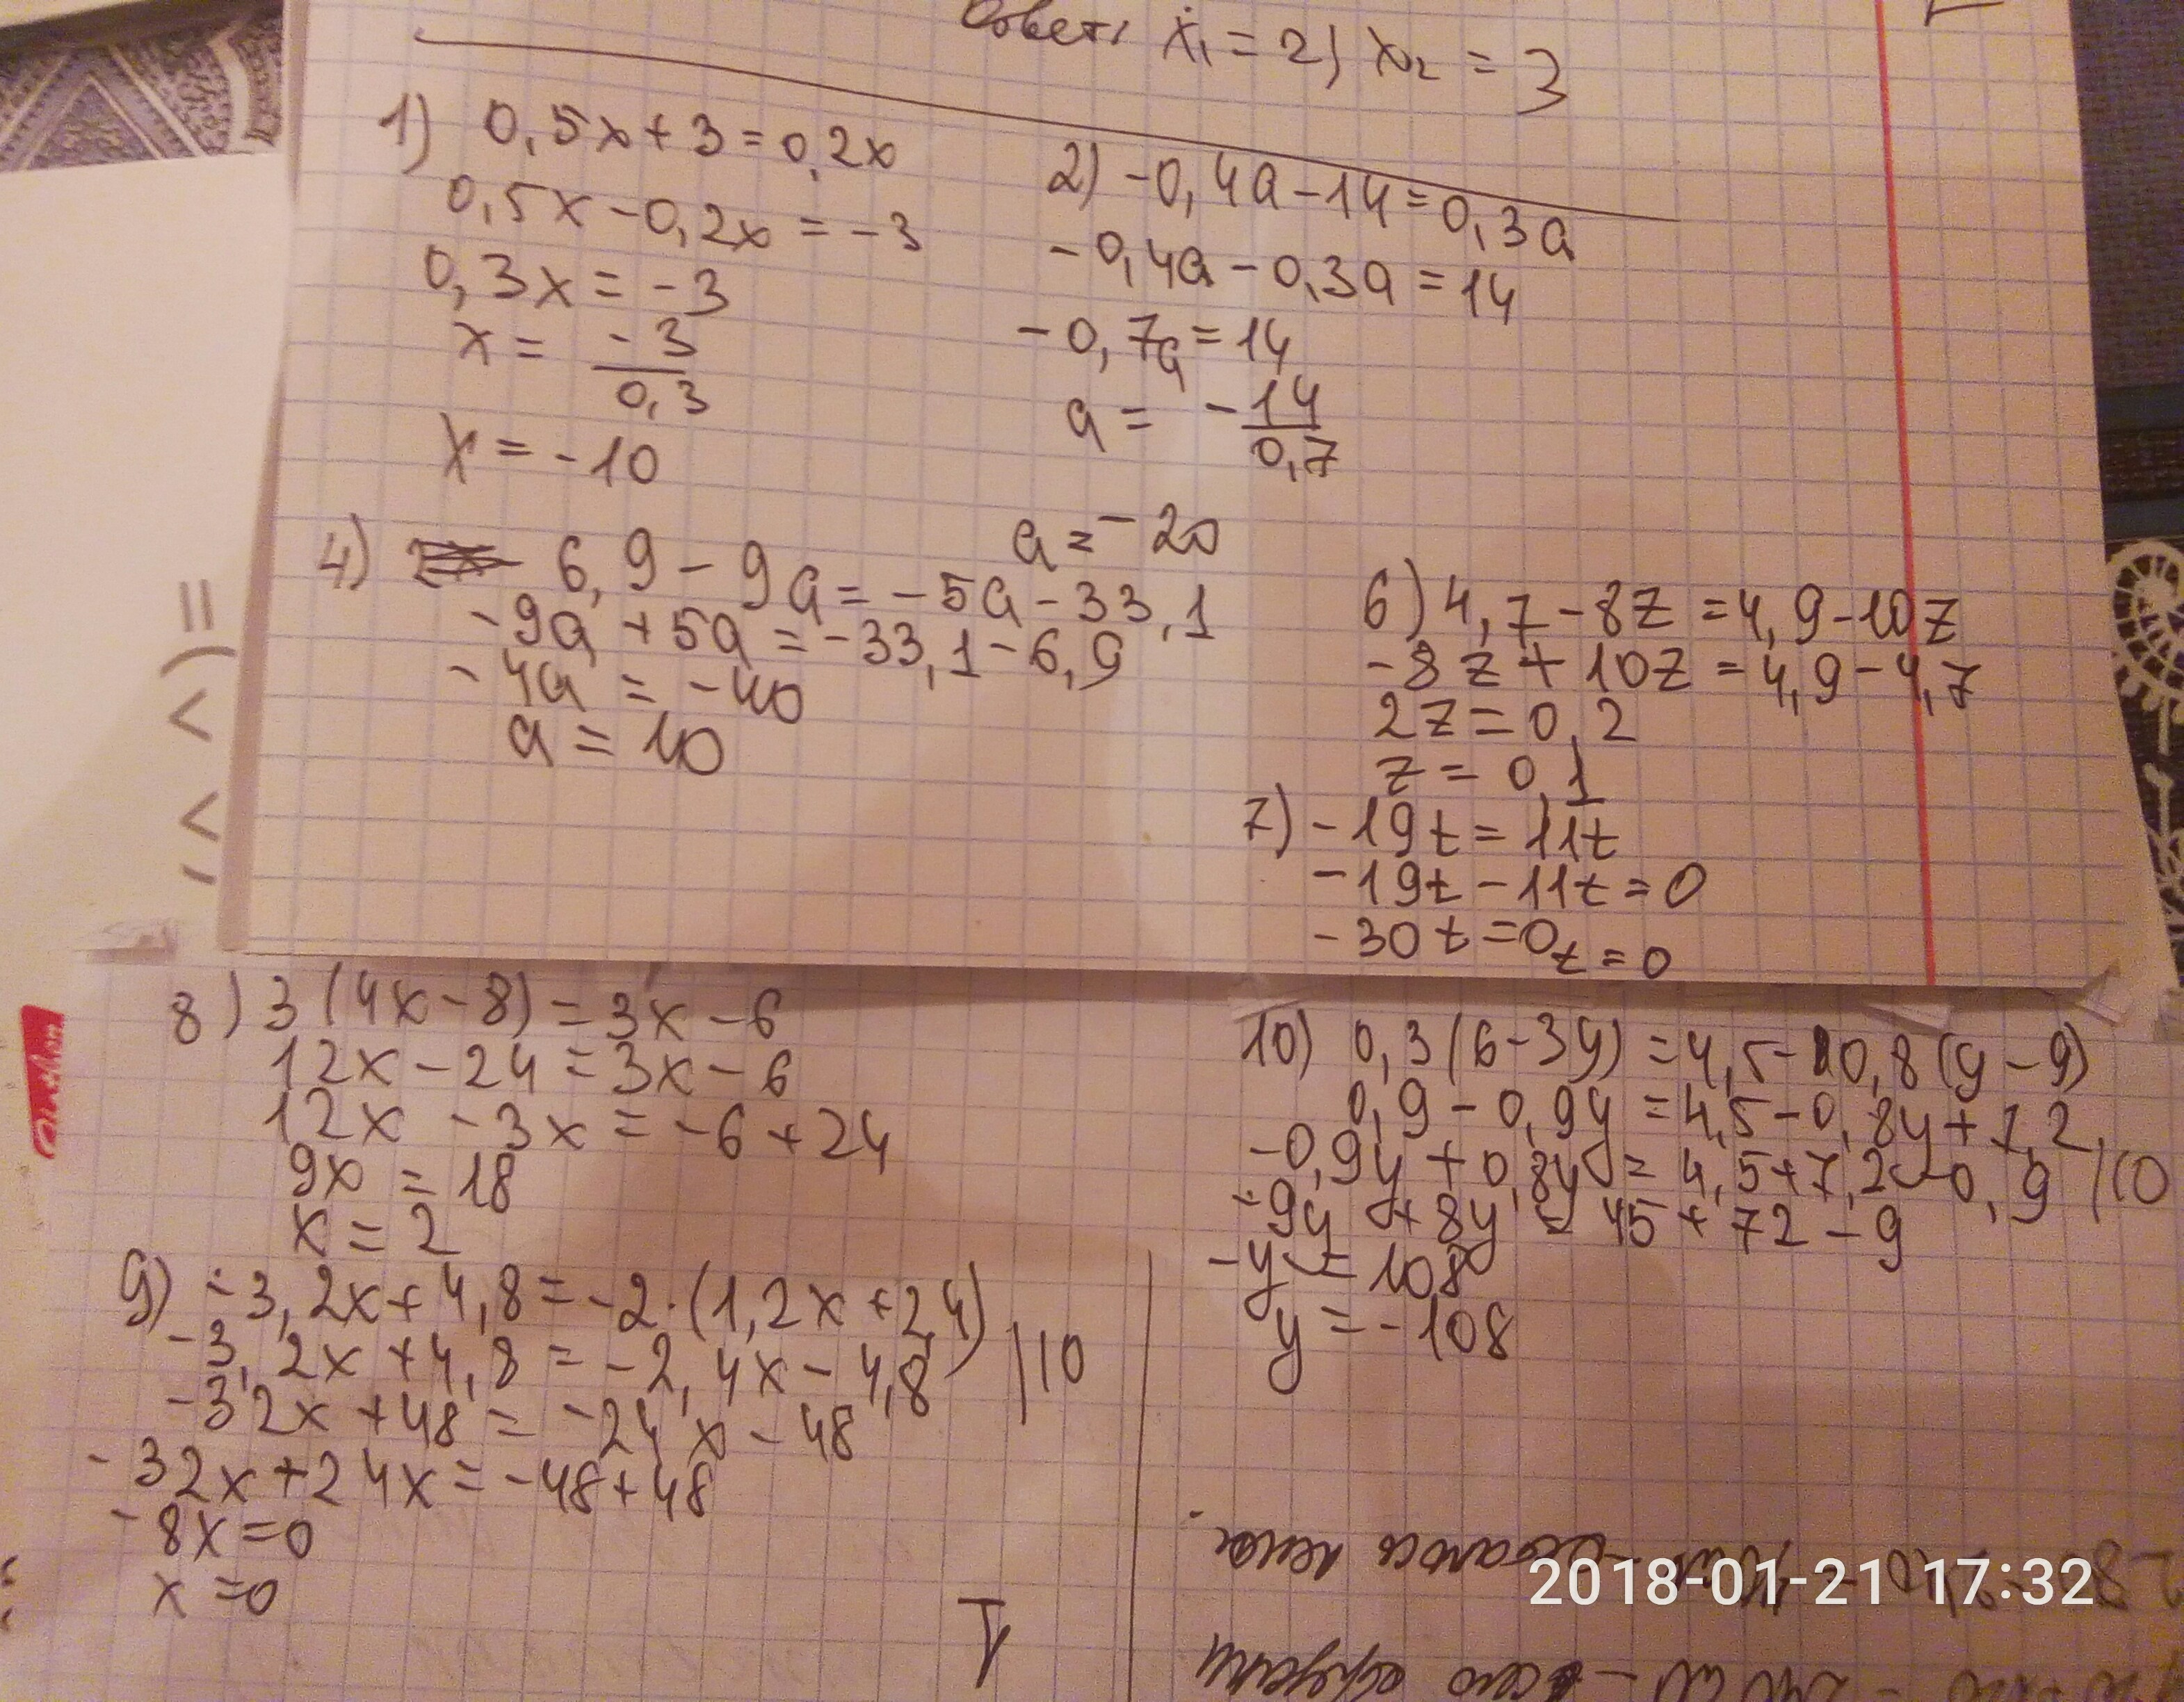 Ответ: x₁ = 2; x₂ = 3
1) 0,5x + 3 = 0,2x
0,5x - 0,2x = -3
0,3x = -3
x = -3/0,3
x = -10
2) -0,4a - 14 = 0,3a
-0,4a - 0,3a = 14
-0,7a = 14
a = -14/0,7
a = -20
4) 6,9 - 9a = -5a - 33,1
-9a + 5a = -33,1 - 6,9
-4a = -40
a = 10
6) 4,7 - 8z = 4,9 - 10z
-8z + 10z = 4,9 - 4,7
2z = 0,2
z = 0,1
7) -19t = 11t
-19t - 11t = 0
-30t = 0 t = 0
8) 3(4x - 8) = 3x - 6
12x - 24 = 3x - 6
12x - 3x = -6 + 24
9x = 18
x = 2
9) -3,2x + 4,8 = -2·(1,2x + 2,4)
-3,2x + 4,8 = -2,4x - 4,8 |10
-32x + 48 = -24x - 48
-32x + 24x = -48 + 48
-8x = 0
x = 0
10) 0,3(6 - 3y) = 4,5 - 0,8(y - 9)
0,9 - 0,9y = 4,5 - 0,8y + 7,2
-0,9y + 0,8y = 4,5 + 7,2 - 0,9 |10
-9y + 8y = 45 + 72 - 9
-y = 108
y = -108
2018-01-21 17:32